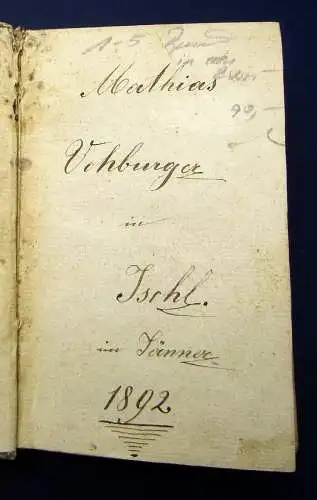 1-5
in
90,-
Mathias
Vohburger
in
Ischl.
im Jänner
1892